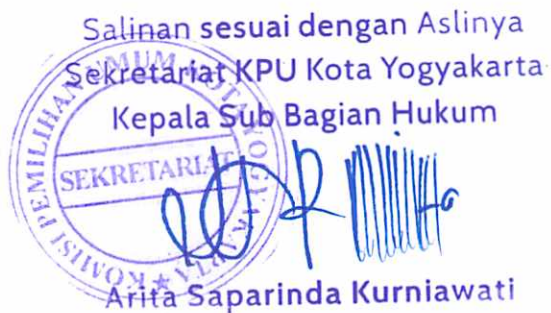 Salinan sesuai dengan Aslinya
Sekretariat KPU Kota Yogyakarta
Kepala Sub Bagian Hukum
KOMISI PEMILIHAN UMUM KOTA YOGYAKARTA
SEKRETARIAT
Arita Saparinda Kurniawati